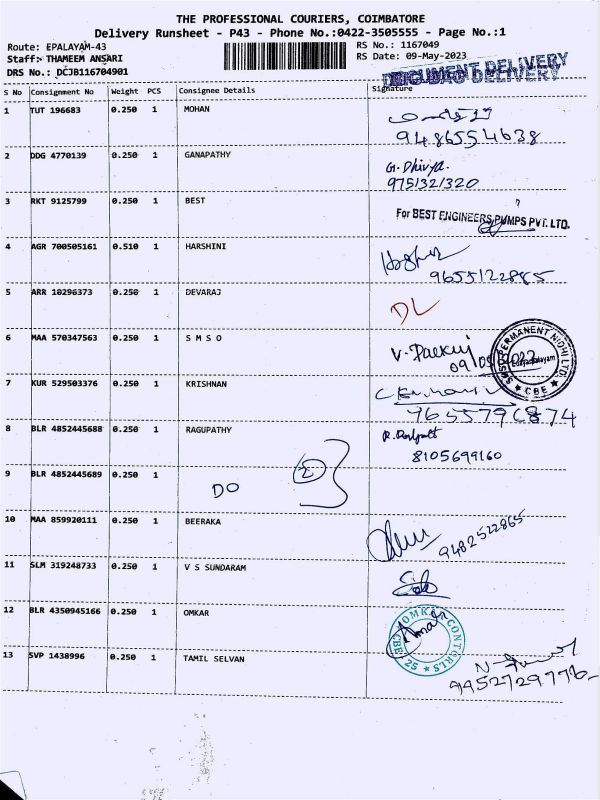 THE PROFESSIONAL COURIERS, COIMBATORE
Delivery Runsheet - P43 - Phone No.:0422-3505555 - Page No.:1
Route: EPALAYAM-43 RS No.: 1167049
Staff: THAMEEM ANSARI RS Date: 09-May-2023
DRS No.: DCJB116704901
DOCUMENT DELIVERY
S No Consignment No Weight PCS Consignee Details Signature
1 TUT 196683 0.250 1 MOHAN
9486554638
2 DDG 4770139 0.250 1 GANAPATHY G. Dhivya.
9751321320
3 RKT 9125799 0.250 1 BEST For BEST ENGINEERS PUMPS PVT. LTD.
4 AGR 700505161 0.510 1 HARSHINI
9655122885
5 ARR 10296373 0.250 1 DEVARAJ DL
6 MAA 570347563 0.250 1 S M S O
PERMANENT NIDHI LTD. CBE
7 KUR 529503376 0.250 1 KRISHNAN
8 BLR 4852445688 0.250 1 RAGUPATHY
8105699160
9 BLR 4852445689 0.250 1 DO 2
10 MAA 859920111 0.250 1 BEERAKA
9482522865
11 SLM 319248733 0.250 1 V S SUNDARAM
12 BLR 4350945166 0.250 1 OMKAR
CBE 25
13 SVP 1438996 0.250 1 TAMIL SELVAN